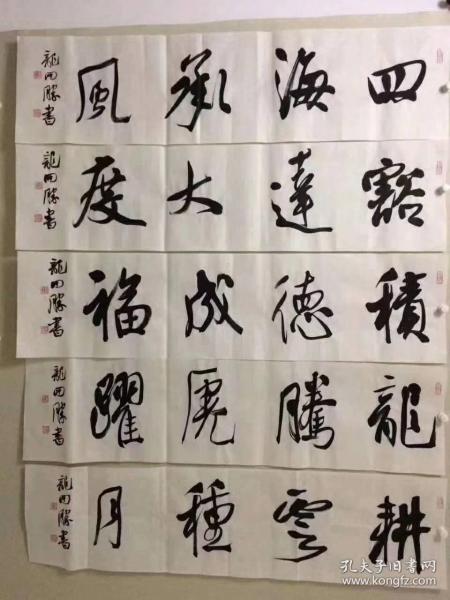 四海承風 龍開勝書
豁達大度 龍開勝書
積德成福 龍開勝書
龍騰虎躍 龍開勝書
耕雲種月 龍開勝書
孔夫子旧书网
www.kongfz.com